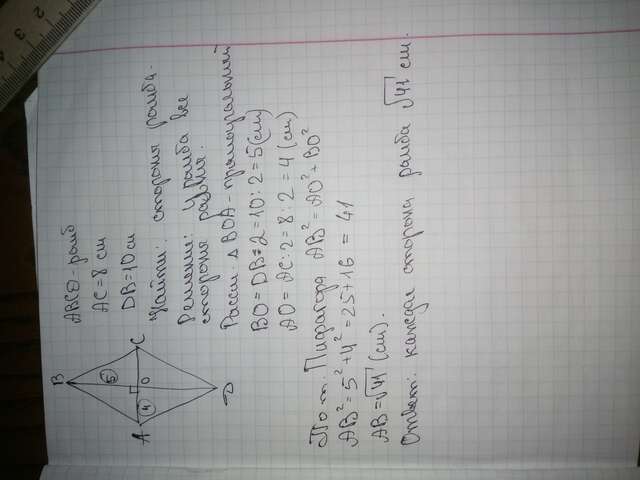 ABCD - ромб
AC = 8 см
DB = 10 см
Найти: сторона ромба.
Решение: У ромба все
стороны равны.
Рассм. △ BOA - прямоугольный
BO = DB : 2 = 10 : 2 = 5 (см)
AO = AC : 2 = 8 : 2 = 4 (см)
По т. Пифагора AB² = AO² + BO²
AB² = 5² + 4² = 25 + 16 = 41
AB = √41 (см).
Ответ: каждая сторона ромба √41 см.
B
5
A
4
O
C
D
2
3
4